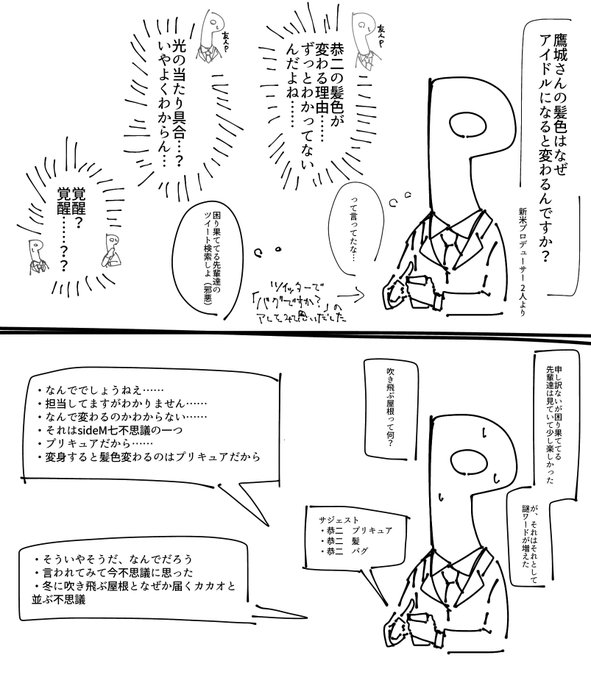 鷹城さんの髪色はなぜ
アイドルになると変わるんですか？
新米プロデューサー2人より
友人P
恭二の髪色が
変わる理由……
ずっとわかってない
んだよね……
友人P
光の当たり具合…？
いやよくわからん…
覚醒？
覚醒……？？
って言ってたな…
ツイッターで
「バグですか？」の
アレしてみて思いだした
困り果ててる先輩達の
ツイート検索しよ（邪悪）
申し訳ないが困り果ててる
先輩達は見ていて少し楽しかった
が、それはそれとして
謎ワードが増えた
吹き飛ぶ屋根って何？
サジェスト
・恭二　プリキュア
・恭二　髪
・恭二　バグ
・なんででしょうねえ……
・担当してますがわかりません……
・なんで変わるのかわからない……
・それはsideM七不思議の一つ
・プリキュアだから……
・変身すると髪色変わるのはプリキュアだから
・そういやそうだ、なんでだろう
・言われてみて今不思議に思った
・冬に吹き飛ぶ屋根となぜか届くカカオと
並ぶ不思議